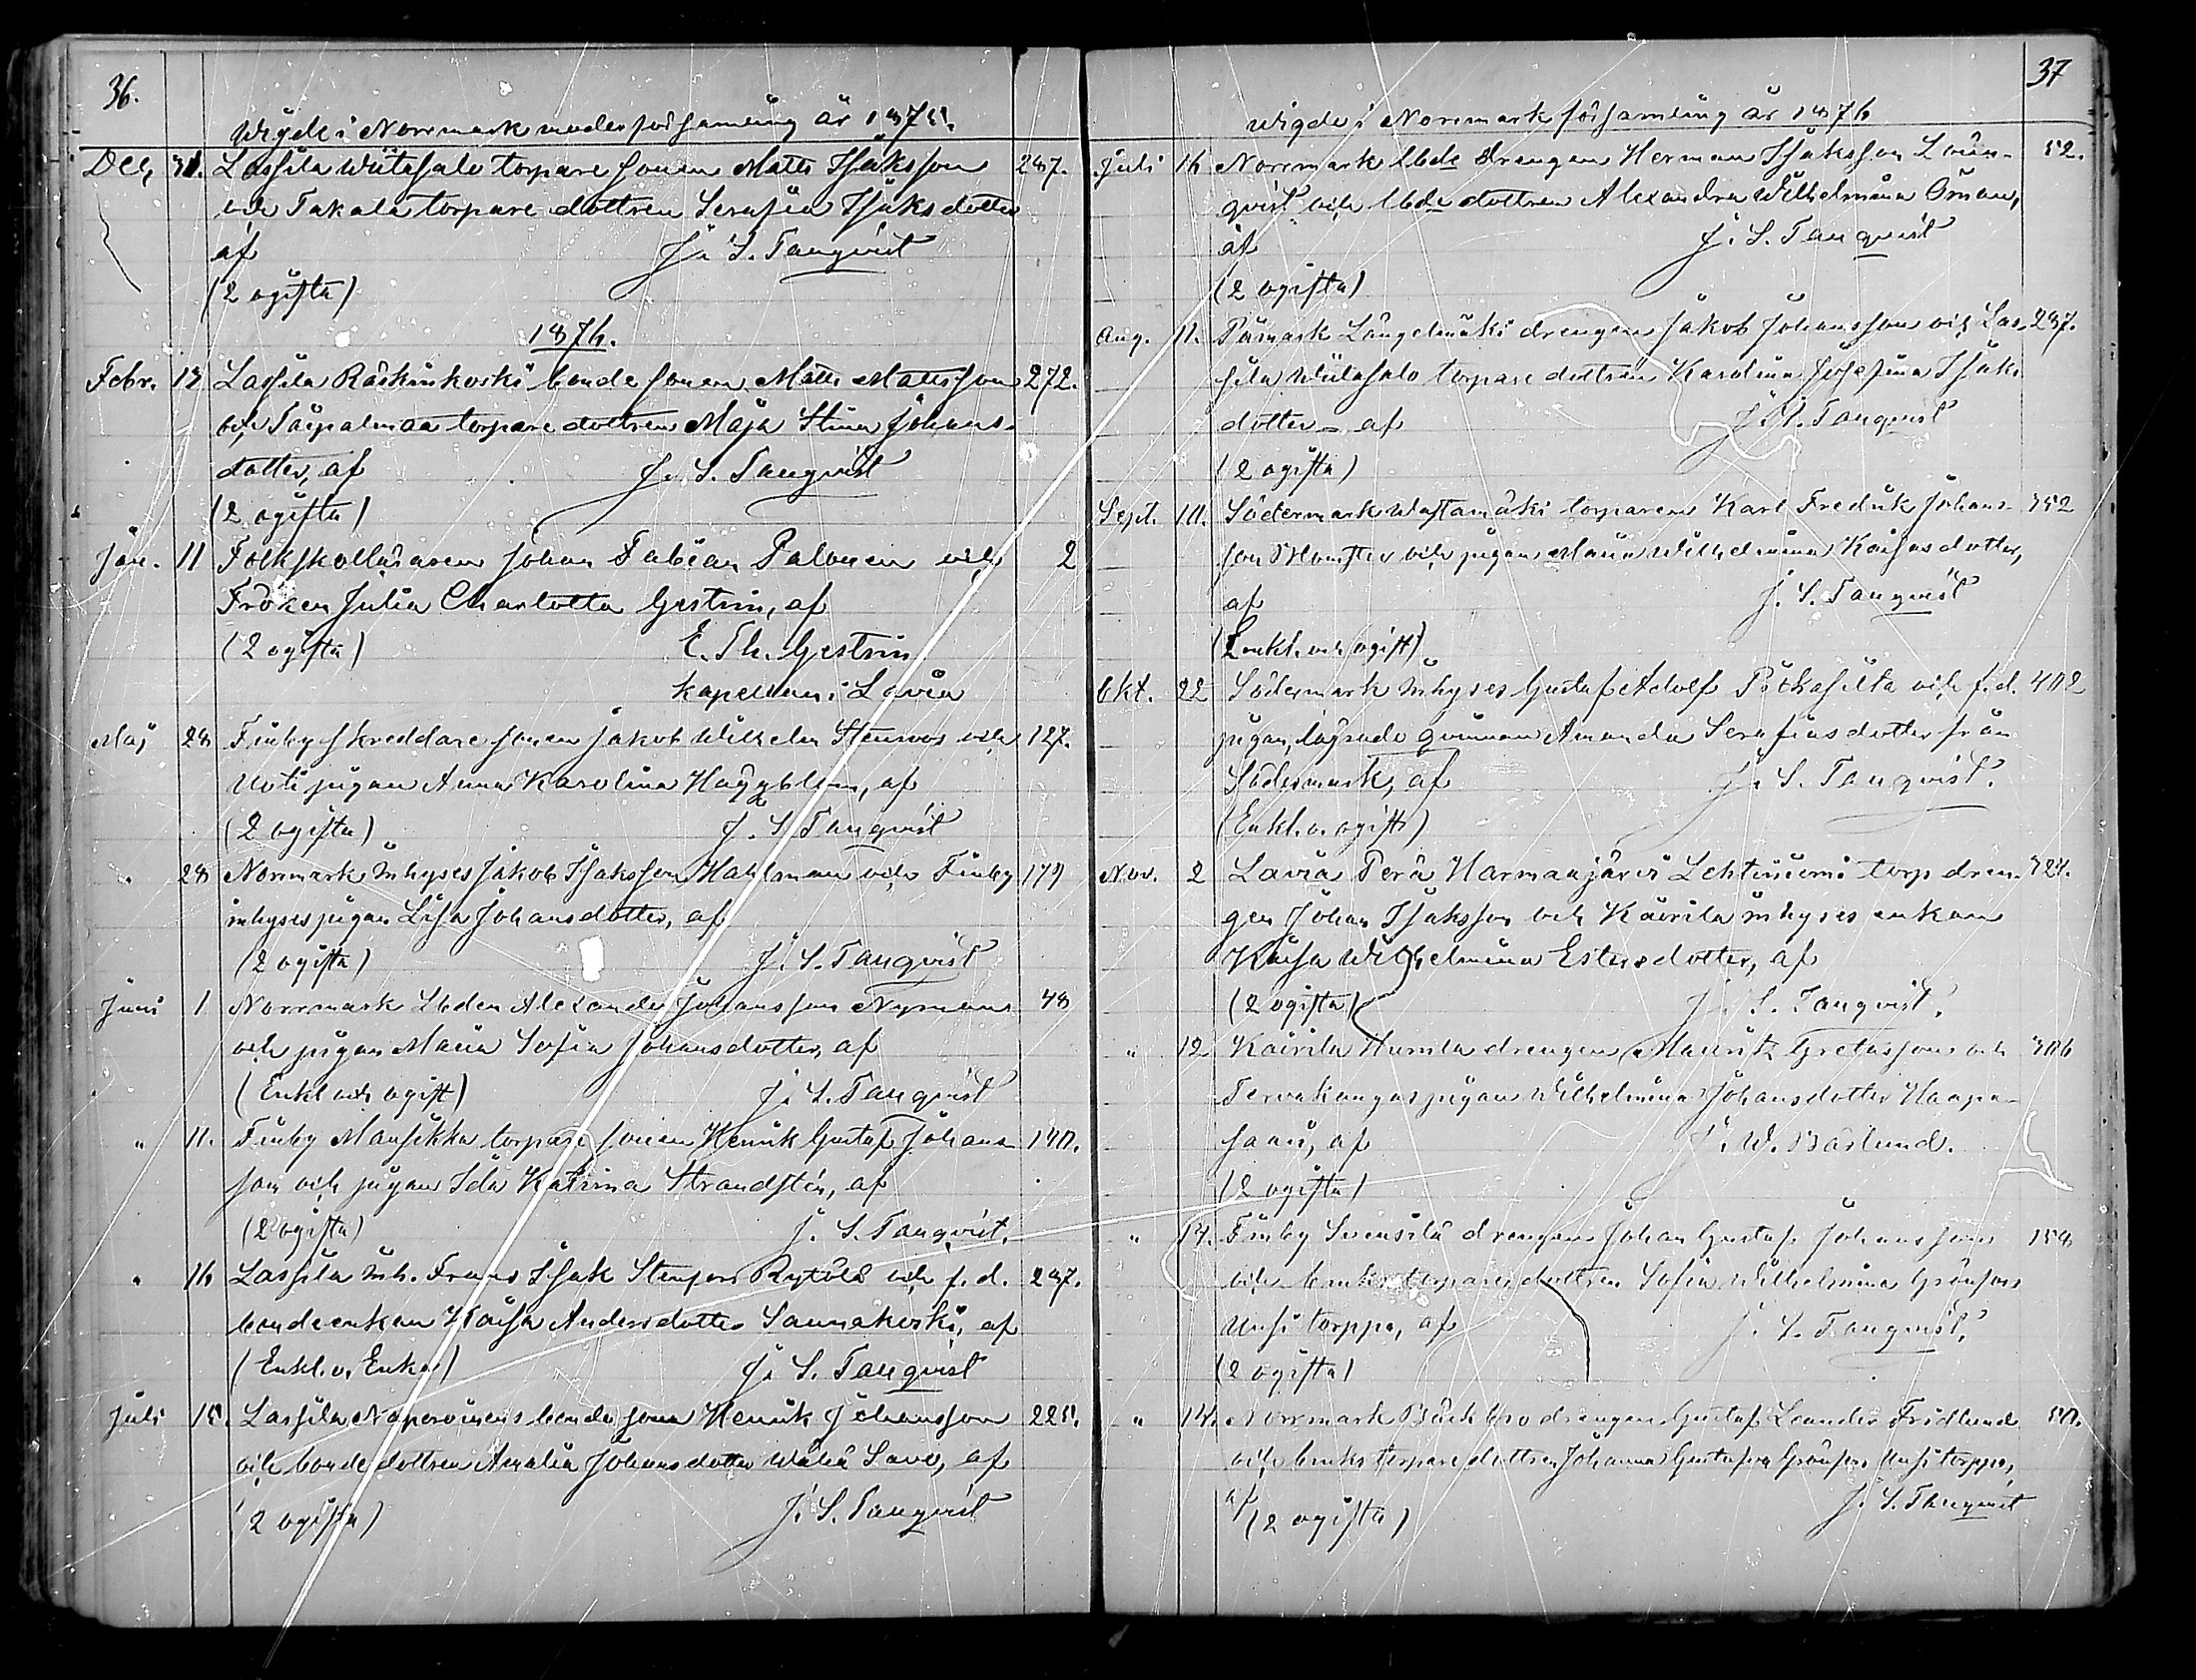 36.
Wigde i Norrmark moderförsamling år 1875.
Dec. 31. Lassila Wiitasalo torpare sonen Matts Isaksson 287.
och Takala torpare dottren Serafia Isaksdotter
af J. S. Tanqvist
(2 ogifta)
1876.
Febr. 13 Lassila Raskinkoski bonde sonen Matts Mattsson 272.
och torpare dottren Maja Stina Johans-
dotter, af J. S. Tanqvist
(2 ogifta)
11 Folkskolläraren Johan Fabian Palonen och 2
Fröken Julia Charlotta Gestrin, af
(2 ogifta) E. Th. Gestrin
kapellan i Lavia
Maj 28 Finby skreddare sonen Jakob Wilhelm Stenroos och 127.
pigan Anna Karolina Häggblom, af
(2 ogifta) J. S. Tanqvist
" 28 Norrmark inhyses Jakob Isaksson Hallman och Finby 179
inhyses pigan Lisa Johansdotter, af
(2 ogifta) J. S. Tanqvist
Juni 1 Norrmark Alexander Johansson Nyman 48
och pigan Maria Sofia Johansdotter, af
(Enkl. och ogift) J. S. Tanqvist
" 11. Finby Mansikka torpare sonen Henrik Gustaf Johans- 140.
son och pigan Ida Katrina Strandstén, af
(2 ogifta) J. S. Tanqvist.
" 16 Lassila inh. Frans Isak Stenfors och f. d. 297.
bondeenkan Kaisa Andersdotter Sannakoski, af
(Enkl. o. Enka) J. S. Tanqvist
Juli 15. Lassila bonde sonen Henrik Johansson 225.
och bonde dottren Amalia Johansdotter Savo, af
(2 ogifta) J. S. Tanqvist
37
Wigde i Norrmark församling år 1876
Juli 16 Norrmark drengen Herman Isaksson 52.
qvist och dottren Alexandra Wilhelmina Öman,
af J. S. Tanqvist
(2 ogifta)
Aug. 11. Påmark Längelmäki drengen Jakob Johansson och Las- 287.
sila Wiitasalo torpare dottren Karolina Josefina Isaks
dotter, af J. S. Tanqvist
(2 ogifta)
Sept. 10. Södermark torparen Karl Fredrik Johans- 352
son och pigan Maria Wilhelmina Kaisasdotter,
af J. S. Tanqvist
(Enkl. och ogift)
Okt. 22 Södermark inhyses Gustaf Adolf och f. d. 402
pigan, lägrade qvinnan Amanda Serafiasdotter från
Södermark, af J. S. Tanqvist.
(Enkl. o. ogift)
Nov. 2 Lavia Perä Harmaajärvi Lehtiniemi torp dren- 321.
gen Johan Isaksson och Kairila inhyses enkan
Kaisa Wilhelmina Estersdotter, af
(2 ogifta) J. S. Tanqvist.
" 12 Kairila drengen Mauritz Gretasson och 306
Tervakangas pigan Wilhelmina Johansdotter Haapa-
saari, af J. W. Barlund.
(2 ogifta)
" 14. Finby Svensilä drengen Johan Gustaf Johansson 158
och bruks torpare dottren Sofia Wilhelmina Grönfors
Uusi torppa, af J. S. Tanqvist.
(2 ogifta)
" 14. Norrmark drengen Gustaf Leander Fridlund 50.
och bruks torpare dottren Johanna Gustafva Grönfors Uusi torppa,
af J. S. Tanqvist
(2 ogifta)